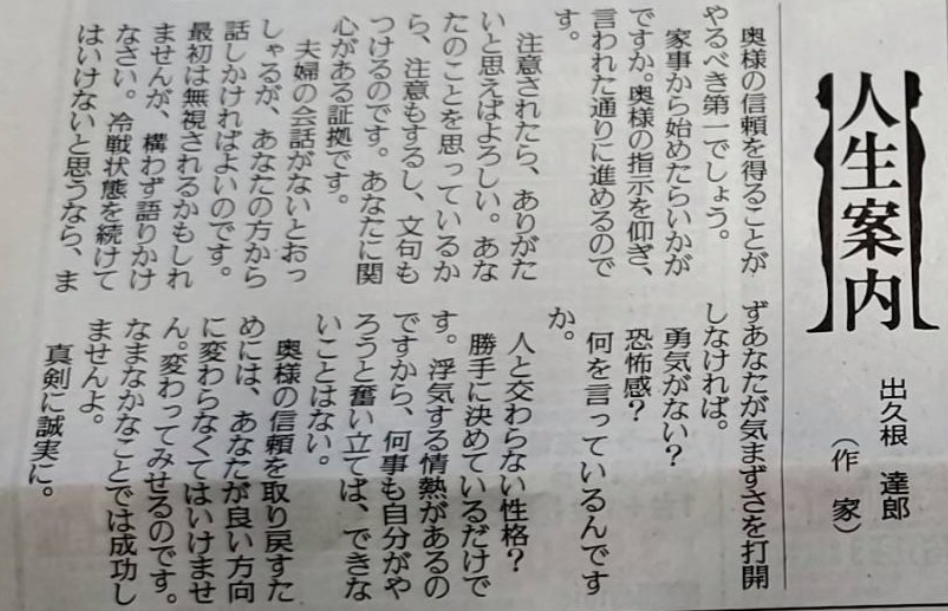 人生案内
出久根 達郎
(作 家)
奥様の信頼を得ることが
やるべき第一でしょう。
家事から始めたらいかが
ですか。奥様の指示を仰ぎ、
言われた通りに進めるので
す。
注意されたら、ありがた
いと思えばよろしい。あな
たのことを思っているか
ら、注意もするし、文句も
つけるのです。あなたに関
心がある証拠です。
夫婦の会話がないとおっ
しゃるが、あなたの方から
話しかければよいのです。
最初は無視されるかもしれ
ませんが、構わず語りかけ
なさい。冷戦状態を続けて
はいけないと思うなら、ま
ずあなたが気まずさを打開
しなければ。
勇気がない?
恐怖感?
何を言っているんです
か。
人と交わらない性格?
勝手に決めているだけで
す。浮気する情熱があるの
ですから、何事も自分がや
ろうと奮い立てば、できな
いことはない。
奥様の信頼を取り戻すた
めには、あなたが良い方向
に変わらなくてはいけませ
ん。変わってみせるのです。
なまなかなことでは成功し
ませんよ。
真剣に誠実に。